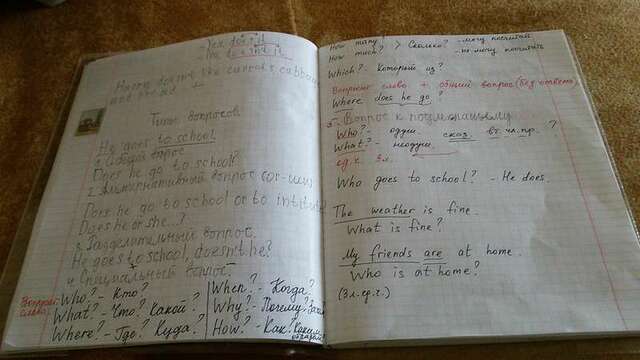 Yes, does it.
No, doesn't it.
Harry doesn't like carrots, cabbage
and bread. +
Типы вопросов
He goes to school
1. Общий вопрос
Does he go to school?
2. Альтернативный вопрос (or-или)
Does he go to school or to institute
Does he or she...?
3. Разделительный вопрос.
He goes to school, doesn't he?
4. Специальный вопрос.
Вопросит. слова:
Who? - Кто?
What? - Что? Какой?
Where? - Где? Куда?
When? - Когда?
Why? - Почему?
How? - Как? Каким образом
How many?
How much? > Сколько? - могу посчитать
- не могу посчитать
Which? Который из?
Вопросит слово + общий вопрос (без ответа)
Where does he go?
5. Вопрос к подлежащему
Who? - одуш. сказ. вт. чл. пр. ?
What? - неодуш.
ед. ч. 3 л.
Who goes to school? - He does.
The weather is fine.
What is fine?
My friends are at home.
Who is at home?
(3 л. ед. ч.)